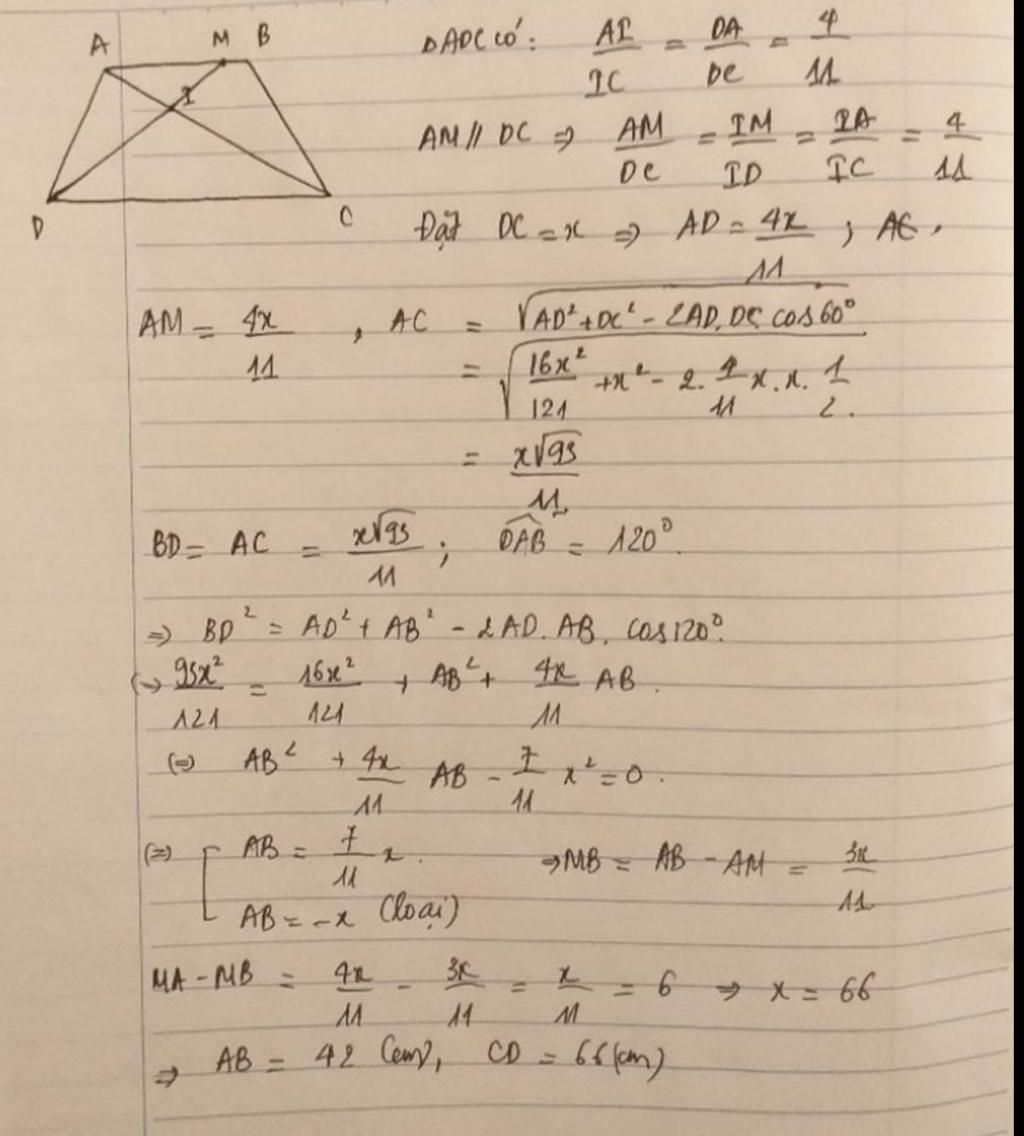 A M B
I
D C
ΔADC có: AI/IC = DA/DC = 4/11
AM // DC ⇒ AM/DC = IM/ID = IA/IC = 4/11
Đặt DC = x ⇒ AD = 4x/11 ; AC,
AM = 4x/11 , AC = √(AD² + DC² - 2AD.DC cos60°)
= √(16x²/121 + x² - 2. 4/11 x.x. 1/2.)
= x√93/11
BD = AC = x√93/11 ; DAB = 120°.
⇒ BD² = AD² + AB² - 2AD.AB. cos120°.
(⇒ 93x²/121 = 16x²/121 + AB² + 4x/11 AB.
(=) AB² + 4x/11 AB - 7/11 x² = 0.
(=) [ AB = 7/11 x. ⇒ MB = AB - AM = 3x/11
AB = -x (loại)
MA - MB = 4x/11 - 3x/11 = x/11 = 6 ⇒ x = 66
⇒ AB = 42 (cm), CD = 66 (cm)